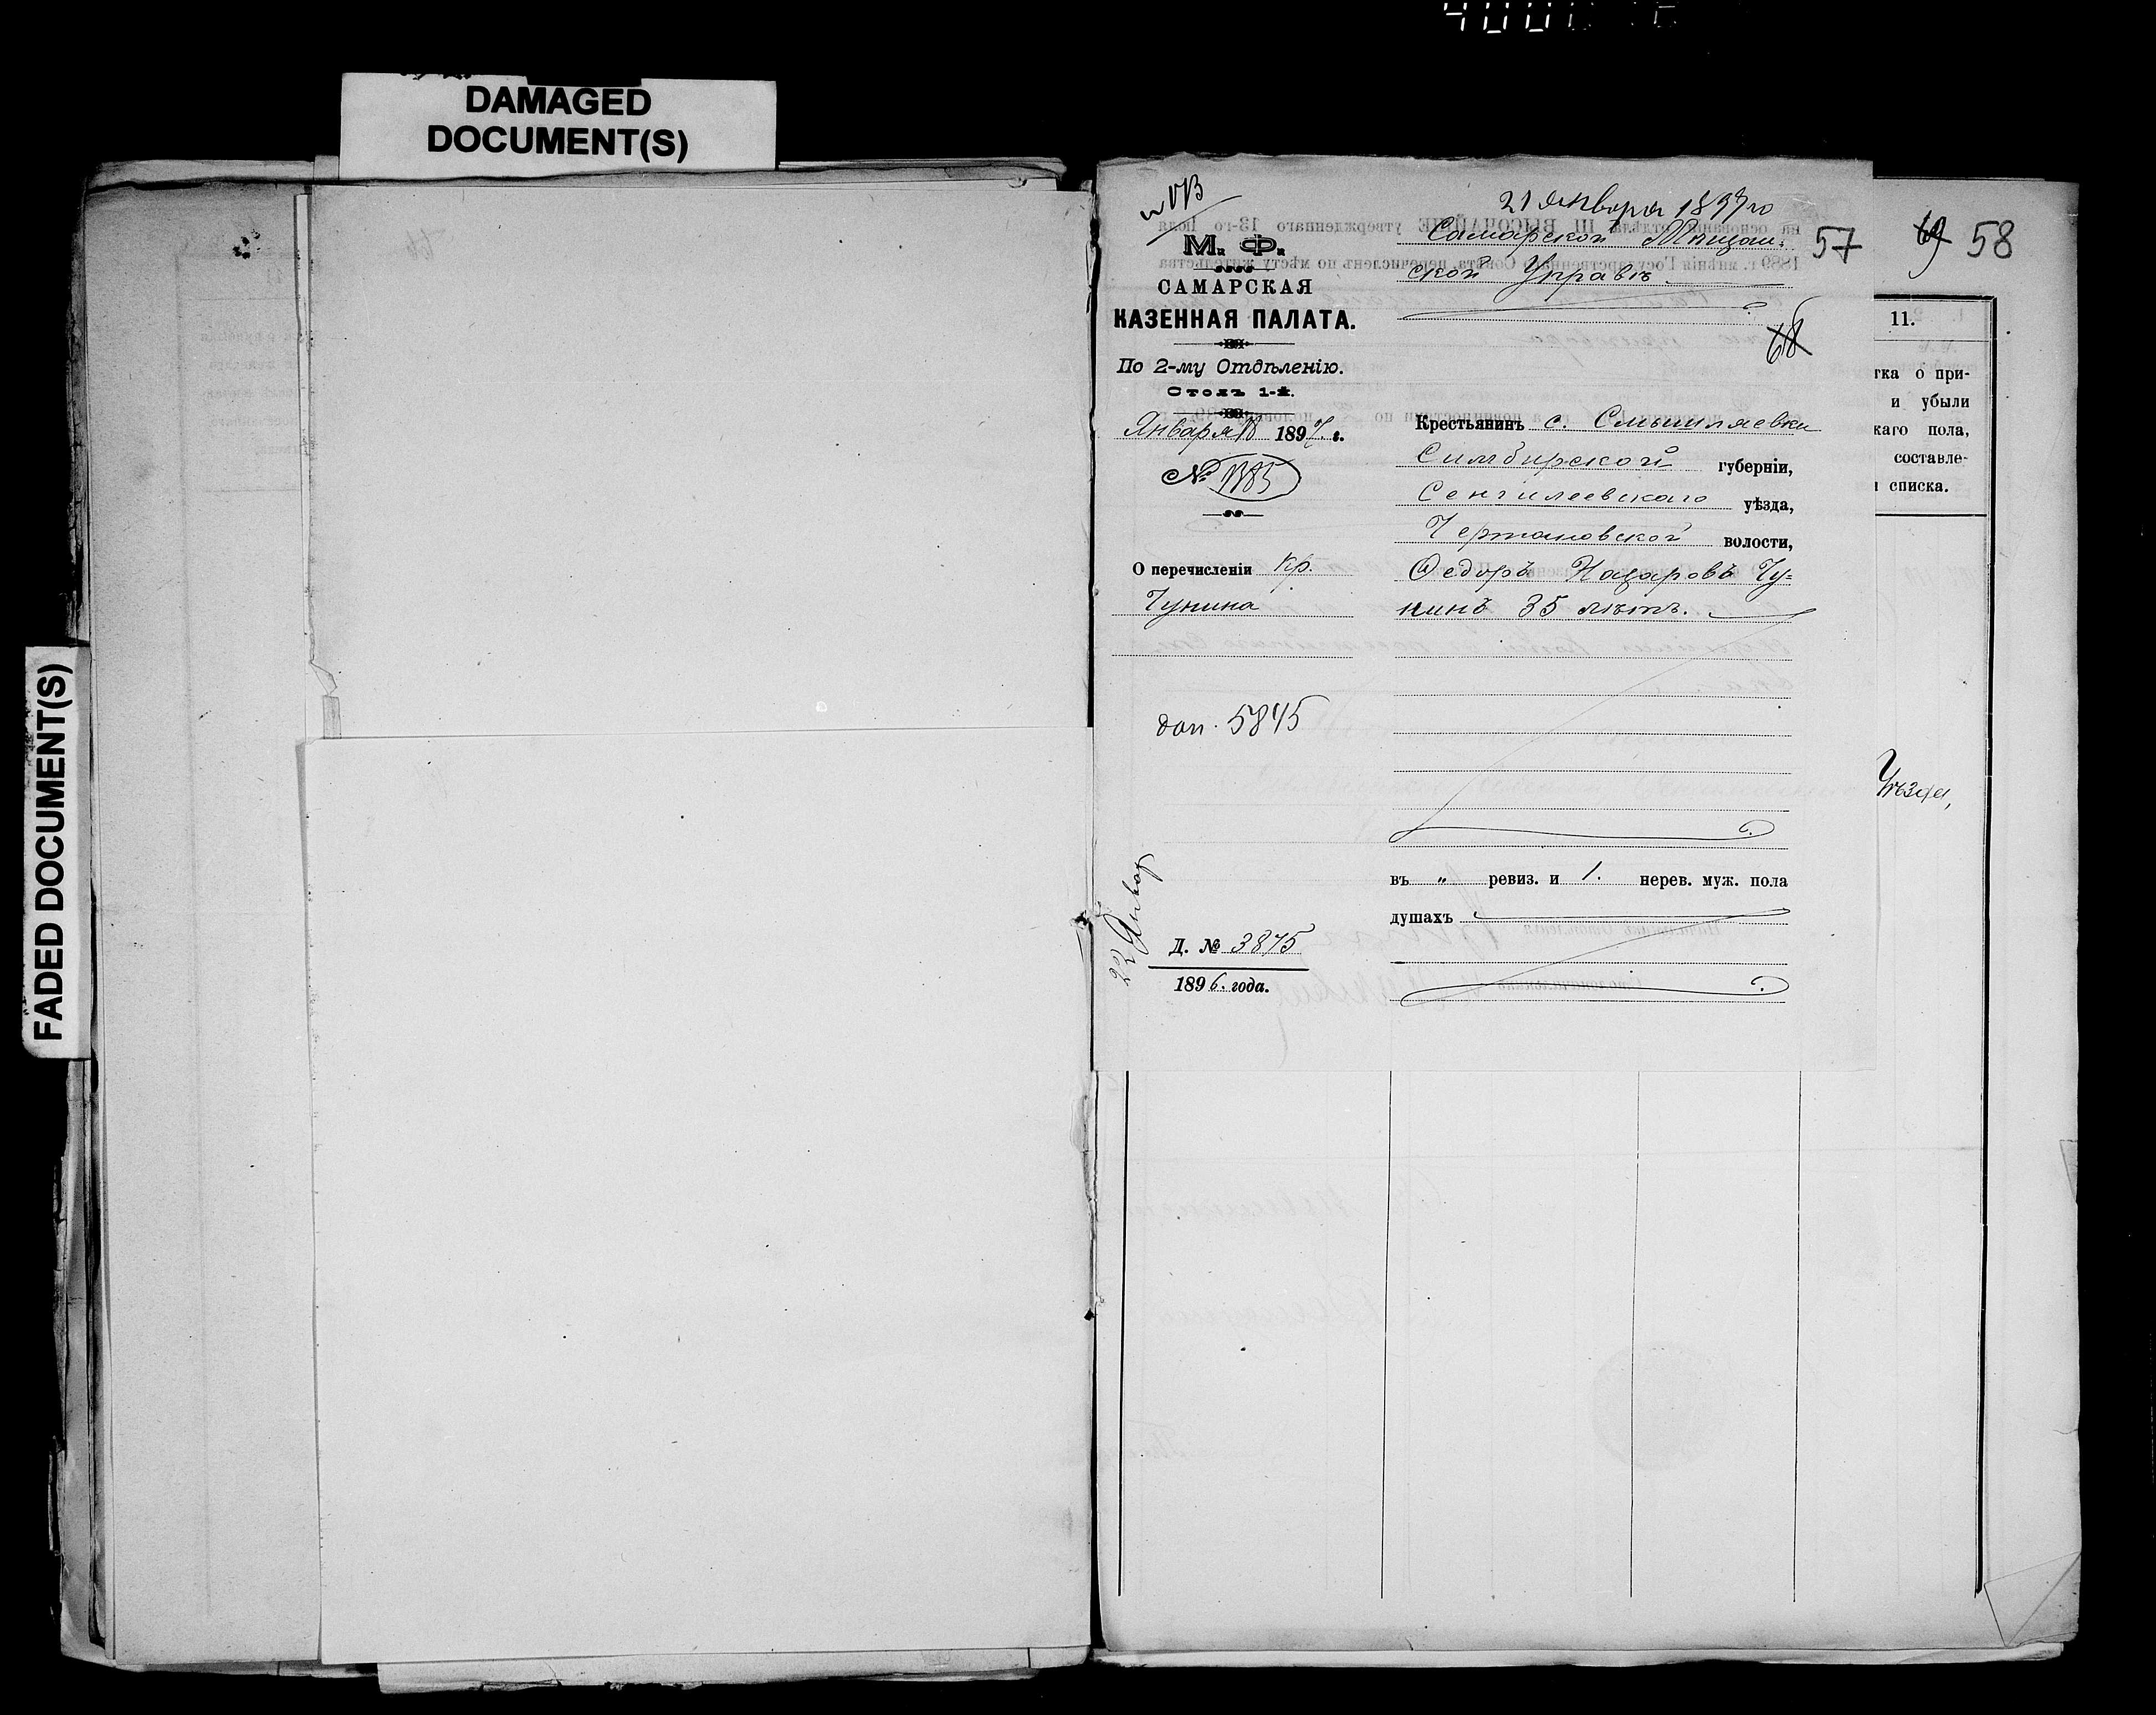 DAMAGED
DOCUMENT(S)
FADED DOCUMENT(S)
21 января 1897 го
М. Ф.
САМАРСКАЯ
КАЗЕННАЯ ПАЛАТА.
По 2-му Отдѣленію.
Столъ 1-й.
Января 18 1897 г.
№ 1385
О перечисленіи кр.
Чунина
доп. 5845
22 Январ
Д. № 3875
1896. года.
Самарской Мѣщан-
ской Управѣ
57
58
69
68
Крестьянинъ с. Смышляевки
Симбирской губерніи,
Сенгилеевскаго уѣзда,
Чертановской волости,
Ѳедоръ Назаровъ Чу-
нинъ 35 лѣтъ.
въ „ ревиз. и 1. нерев. муж. пола
душахъ
11.
тка о при-
и убыли
каго пола,
составле-
и списка.
Уѣзда,